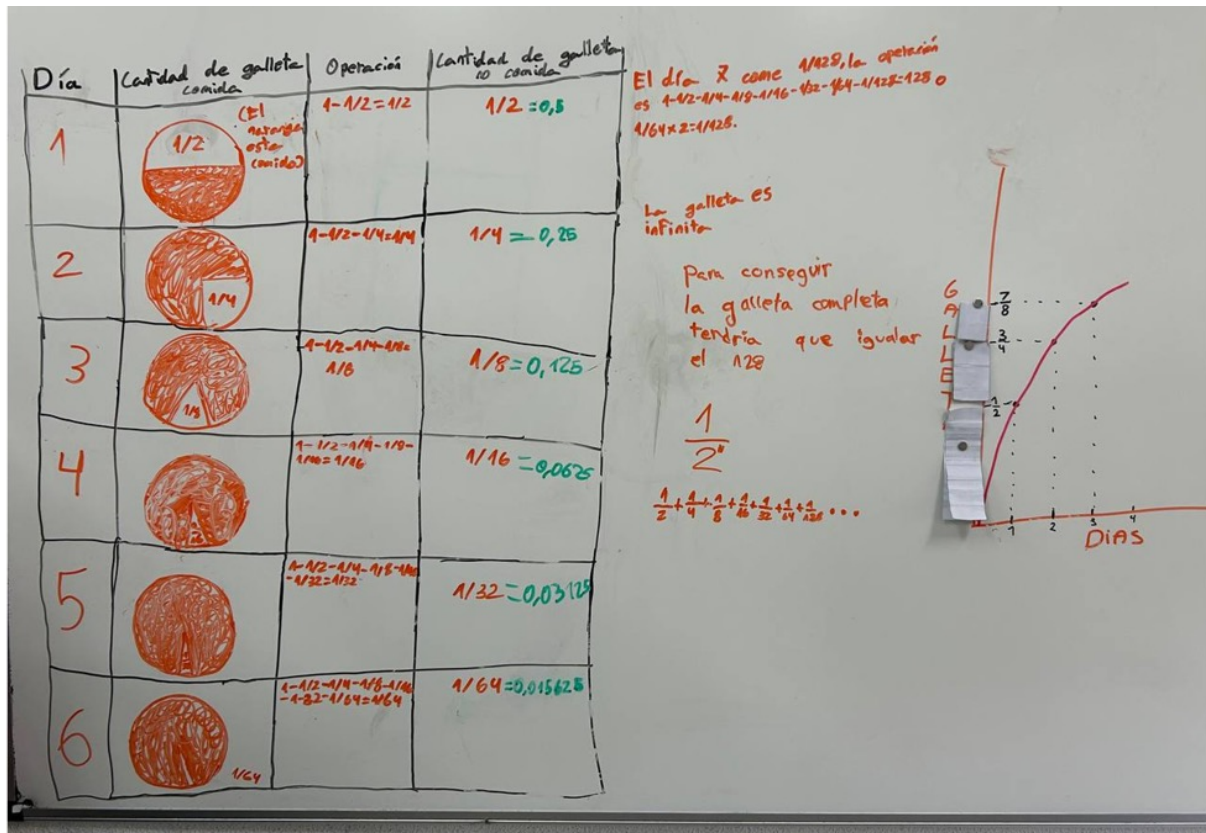 Día
Cantidad de galleta
comida
Operación
Cantidad de galleta
no comida
1
1/2
(El
naranja
esta
comido)
1-1/2=1/2
1/2 =0,5
2
1/4
1-1/2-1/4=1/4
1/4 = 0,25
3
1/8
1-1/2-1/4-1/8=
1/8
1/8=0,125
4
1-1/2-1/4-1/8-
1/16=1/16
1/16 =0,0625
5
1-1/2-1/4-1/8-1/16
-1/32=1/32
1/32=0,03125
6
1/64
1-1/2-1/4-1/8-1/16
-1-32-1/64=1/64
1/64=0,015625
El día 7 come 1/128, la operación
es 1-1/2-1/4-1/8-1/16-1/32-1/64-1/128=128 o
1/64x2=1/128.
La galleta es
infinita
Para conseguir
la galleta completa
tendria que igualar
el 128
1
2
1/2+1/4+1/8+1/16+1/32+1/64+1/128...
G
A
L
L
E
T
7/8
3/4
1/2
1
2
3
4
DíAS